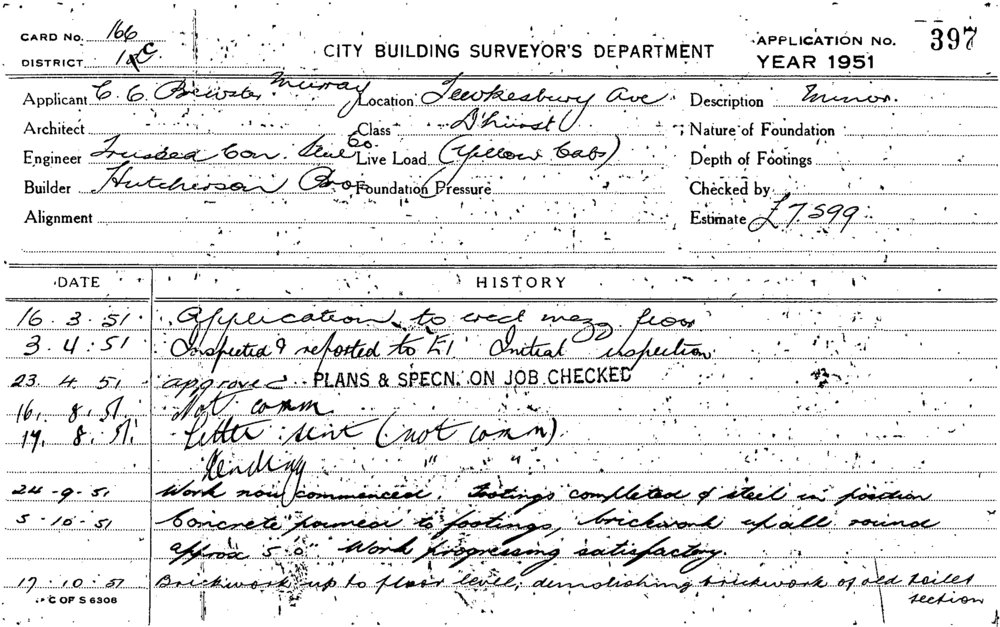 CARD No. 166
DISTRICT
CITY BUILDING SURVEYOR'S DEPARTMENT
APPLICATION No. 397
YEAR 1951
Applicant C. C. Brewster Murray Location Tewkesbury Ave Description Minor.
Architect Class D'hurst Nature of Foundation
Engineer Trussed Con. Steel Co. Live Load (Yellow Cabs) Depth of Footings
Builder Hutcherson Bros Foundation Pressure Checked by
Alignment Estimate £7599
DATE HISTORY
16.3.51. Application to erect mezz floor
3.4.51 Inspected & reported to E1 Initial inspection
23.4.51 approved PLANS & SPECN. ON JOB CHECKED
16.8.51. Not comm
17.8.51. Letter sent (not comm)
Pending " "
24-9-51 Work now commenced. Footings completed & steel in position
5-10-51 Concrete poured to footings, brickwork up all round
approx 5'0" Work progressing satisfactory.
17.10.51 Brickwork up to floor level, demolishing brickwork of old toilet
section
C OF S 6308